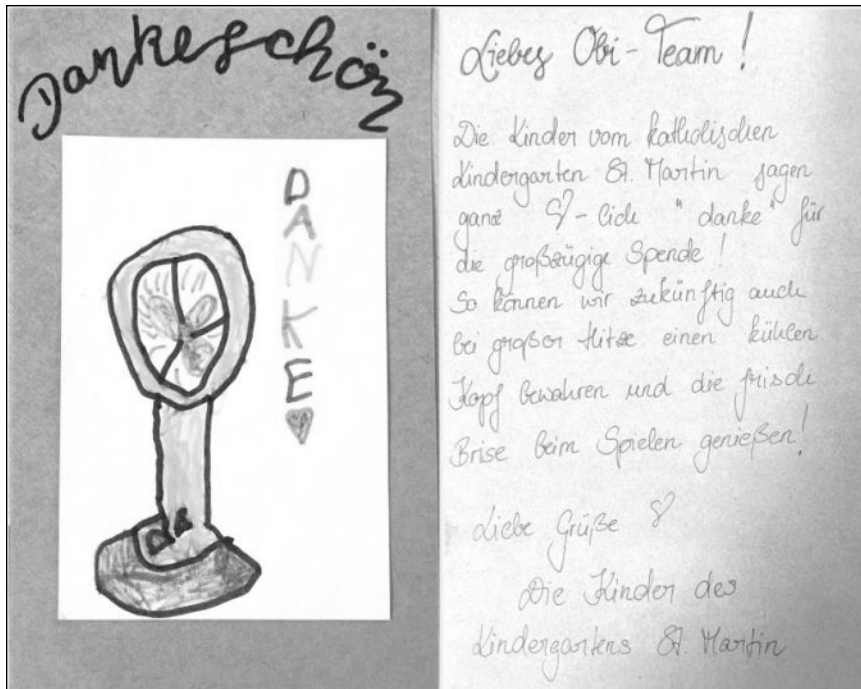 Dankeschön
DANKE
Liebes Obi-Team!
Die Kinder vom katholischen
Kindergarten St. Martin sagen
ganz ♡-lich "danke" für
die großzügige Spende!
So können wir zukünftig auch
bei großer Hitze einen kühlen
Kopf bewahren und die frische
Brise beim Spielen genießen!
Liebe Grüße ♡
Die Kinder des
Kindergartens St. Martin